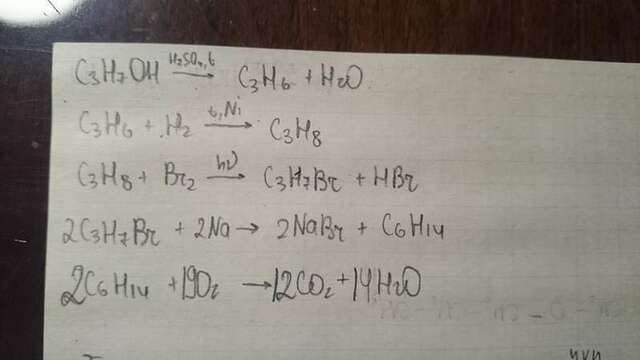 C3H7OH H2SO4, t → C3H6 + H2O
C3H6 + H2 t, Ni → C3H8
C3H8 + Br2 hν → C3H7Br + HBr
2C3H7Br + 2Na → 2NaBr + C6H14
2C6H14 + 19O2 → 12CO2 + 14H2O